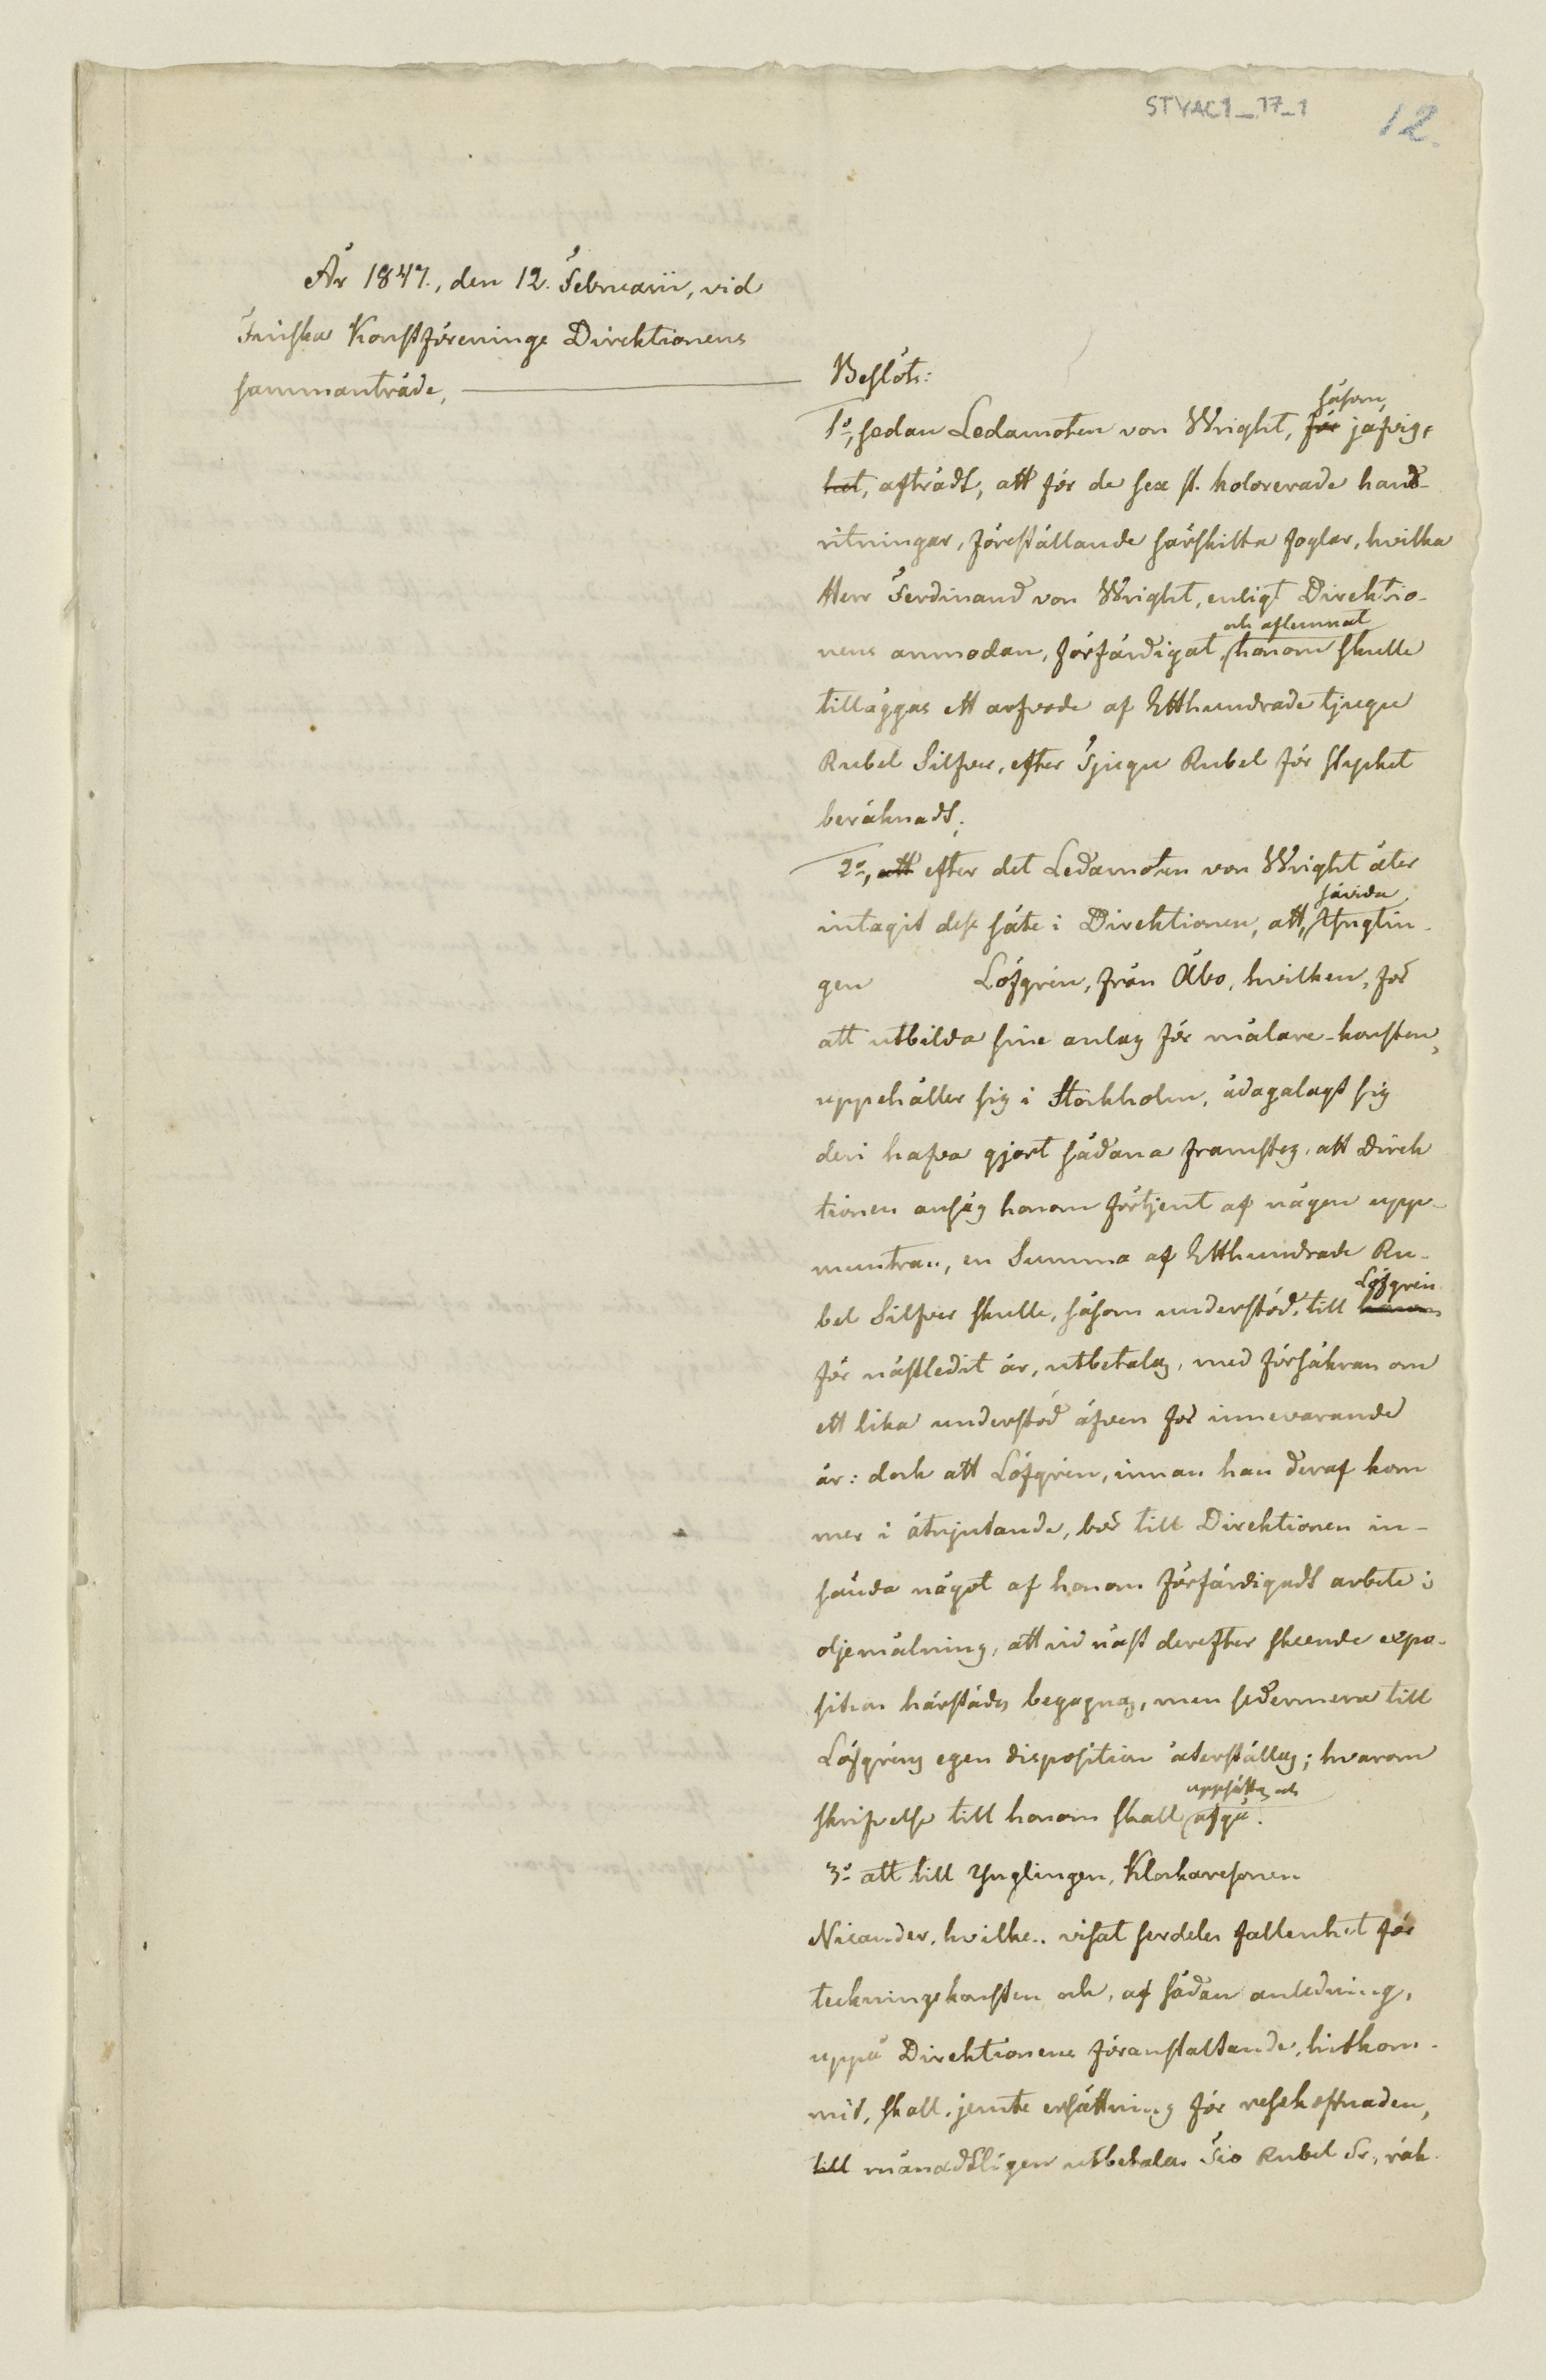 STYAC1_17_1
12.
År 1847., den 12. Februarii, vid
Finska Konstförenings Direktionens
sammanträde,
Beslöts:
såsom
1º, sedan Ledamoten von Wright, för jäfvig,
het, afträdt, att för de sex st. kolorerade hand-
ritningar, föreställande särskilta foglar, hvilka
Herr Ferdinand von Wright, enligt Direktio-
och aflemnat
nens anmodan, förfärdigat, honom skulle
tilläggas ett arfvode af Etthundrade tjugu
Rubel Silfver, efter Tjugu Rubel för stycket
beräknadt;
2º, att efter det Ledamoten von Wright åter
såvida
intagit dess säte i Direktionen, att, Ynglin-
gen Löfgrén, från Åbo, hvilken, för
att utbilda sine anlag för målare-konsten,
uppehåller sig i Stockholm, ådagalagt sig
deri hafva gjort sådana framsteg, att Direk
tionen ansåg honom förtjent af någon upp-
muntran, en Summa af Etthundrade Ru-
Löfgrén
bel Silfver skulle, såsom understöd, till honom
för nästledit år, utbetalas, med försäkran om
ett lika understöd äfven för innevarande
år: dock att Löfgrén, innan han deraf kom
mer i åtnjutande, bör till Direktionen in-
sända något af honom förfärdigadt arbete i
oljemålning, att vid näst derefter skeende expo-
sition härstädes begagnas, men sedermera till
Löfgréns egen disposition återställas; hvarom
uppsättas och
skrifvelse till honom skall afgå.
3º att till Ynglingen, Klockaresonen
Nicander, hvilken visat serdeles fallenhet för
teckningskonsten och, af sådan anledning,
uppå Direktionens föranstaltande, hitkom-
mit, skall, jemte ersättning för resekostnaden,
till månadtligen utbetalas Tio Rubel Sr, räk